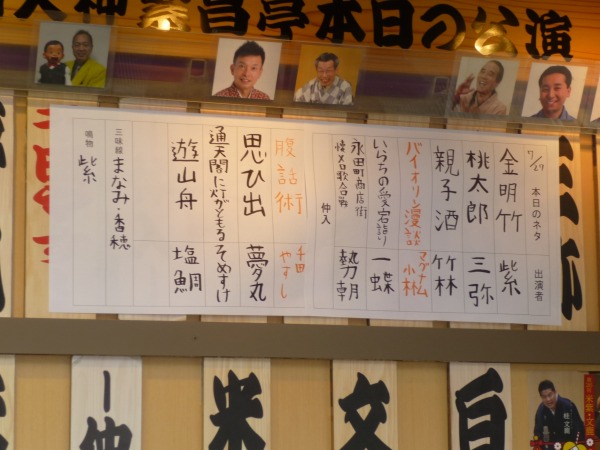 天神繁昌亭本日の公演
7/27 本日のネタ 出演者
金明竹 紫
桃太郎 三弥
親子酒 竹林
バイオリン漫談 マグナム小林
いらちの愛宕詣り 一蝶
永田町商店街
懐メロ歌合戦 勢朝
仲入
腹話術 千田やすし
思ひ出 夢丸
通天閣に灯がともる そめすけ
遊山舟 塩鯛
三味線 まなみ・香穂
鳴物 紫
一
仲
米
文
自
桂 文鹿